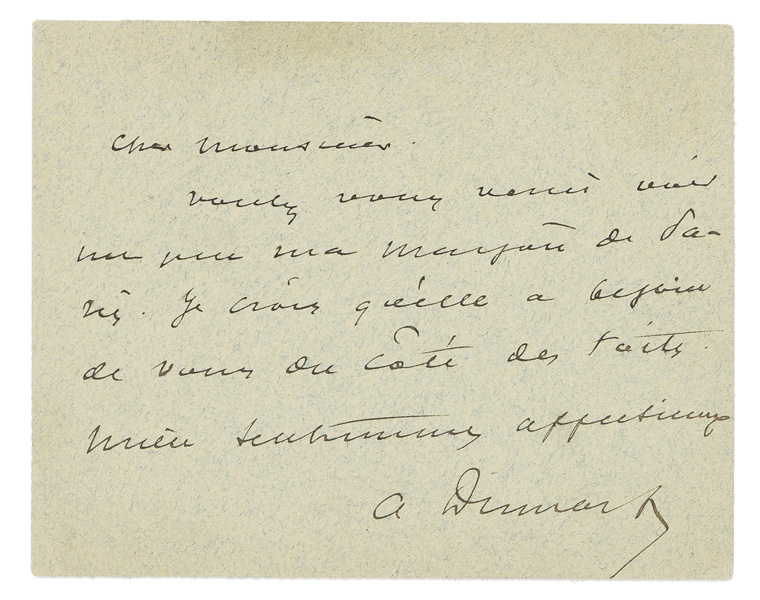 Cher Monsieur.
voulez vous venir voir
un peu ma maison de Pa-
ris. Je crois qu'elle a besoin
de vous du côté des toits.
Mille sentiments affectueux
A Dumas f